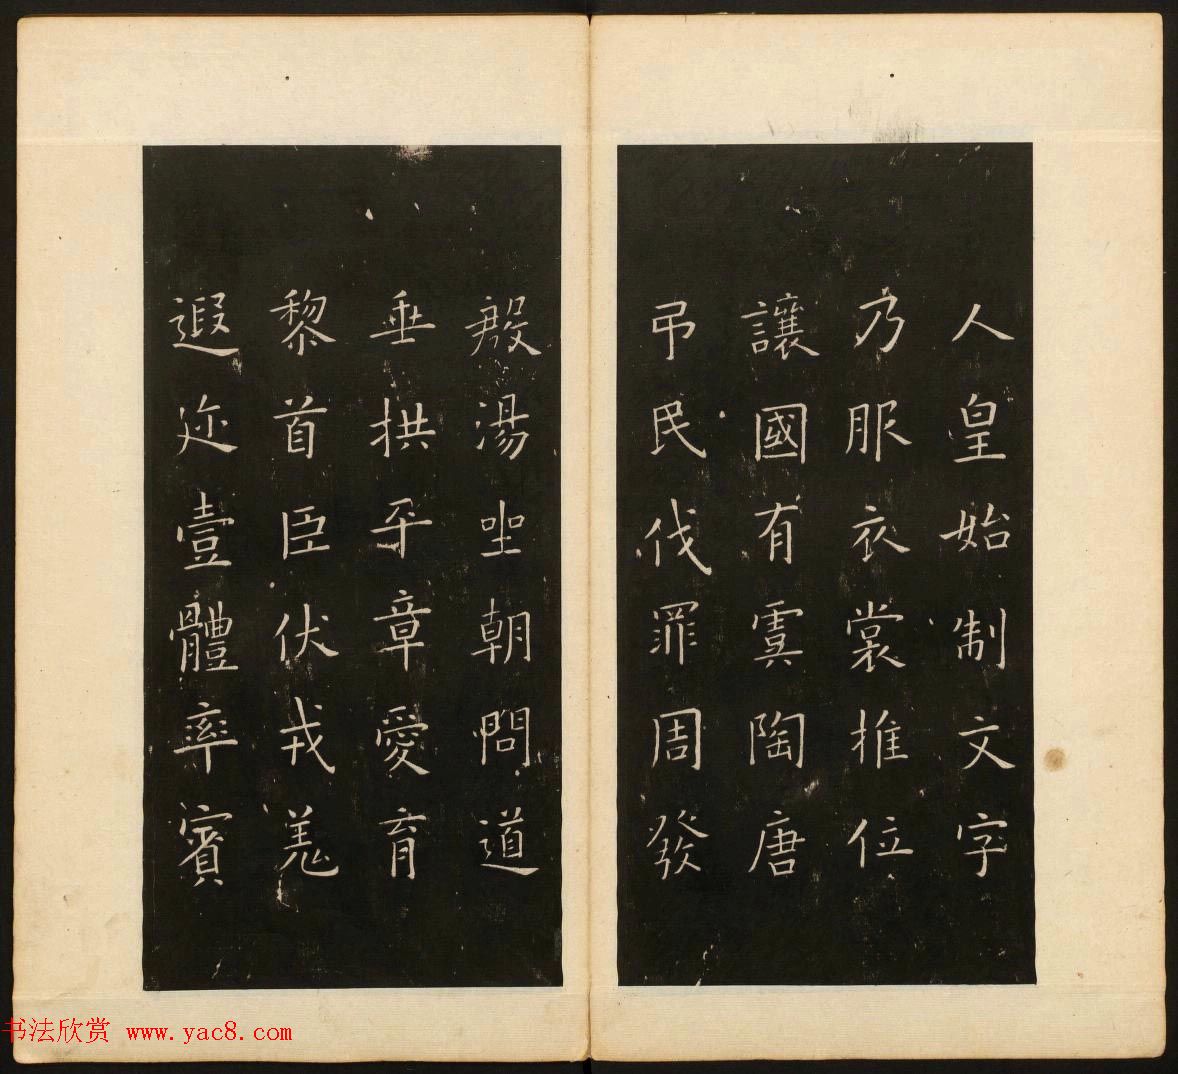 人皇始制文字
乃服衣裳推位
讓國有虞陶唐
弔民伐罪周發
殷湯坐朝問道
垂拱平章愛育
黎首臣伏戎羌
遐迩壹體率賓
书法欣赏 www.yac8.com